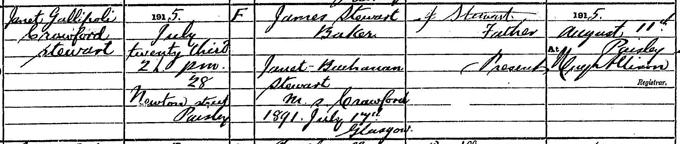 Janet Gallipoli
Crawford
Stewart
1915.
July
twenty third
2h pm.
28
Newton Street
Paisley
F
James Stewart
Baker
Janet Buchanan
Stewart
M.S Crawford
1891. July 17th
Glasgow.
J. Stewart
Father
Present
1915.
August 11th
At Paisley
Registrar.